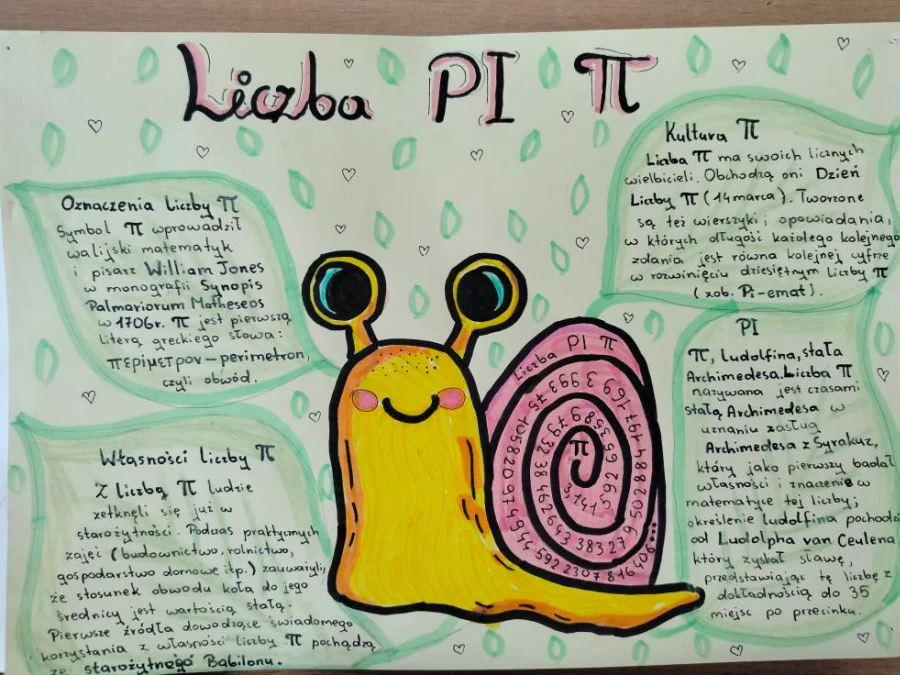 Liczba PI π
Oznaczenia liczby π
Symbol π wprowadził
walijski matematyk
i pisarz William Jones
w monografii Synopis
Palmariorum Matheseos
w 1706r. π jest pierwszą
literą greckiego słowa:
περίμετρον – perimetron,
czyli obwód.
Własności liczby π
Z liczbą π ludzie
zetknęli się już w
starożytności. Podczas praktycznych
zajęć (budownictwo, rolnictwo,
gospodarstwo domowe itp.) zauważyli,
że stosunek obwodu koła do jego
średnicy jest wartością stałą.
Pierwsze źródła dowodzące świadomego
korzystania z własności liczby π pochodzą
ze starożytnego Babilonu.
Liczba PI π
π
3,141592
Kultura π
Liczba π ma swoich licznych
wielbicieli. Obchodzą oni Dzień
Liczby π (14 marca). Tworzone
są też wierszyki i opowiadania,
w których długość każdego kolejnego
zdania jest równa kolejnej cyfrze
w rozwinięciu dziesiętnym liczby π
(zob. Pi-emat).
PI
π, ludolfina, stała
Archimedesa. Liczba π
nazywana jest czasami
stałą Archimedesa w
uznaniu zasług
Archimedesa z Syrakuz,
który jako pierwszy badał
własności i znaczenie w
matematyce tej liczby;
określenie ludolfina pochodzi
od Ludolpha van Ceulena,
który zyskał sławę,
przedstawiając tę liczbę z
dokładnością do 35
miejsc po przecinku.